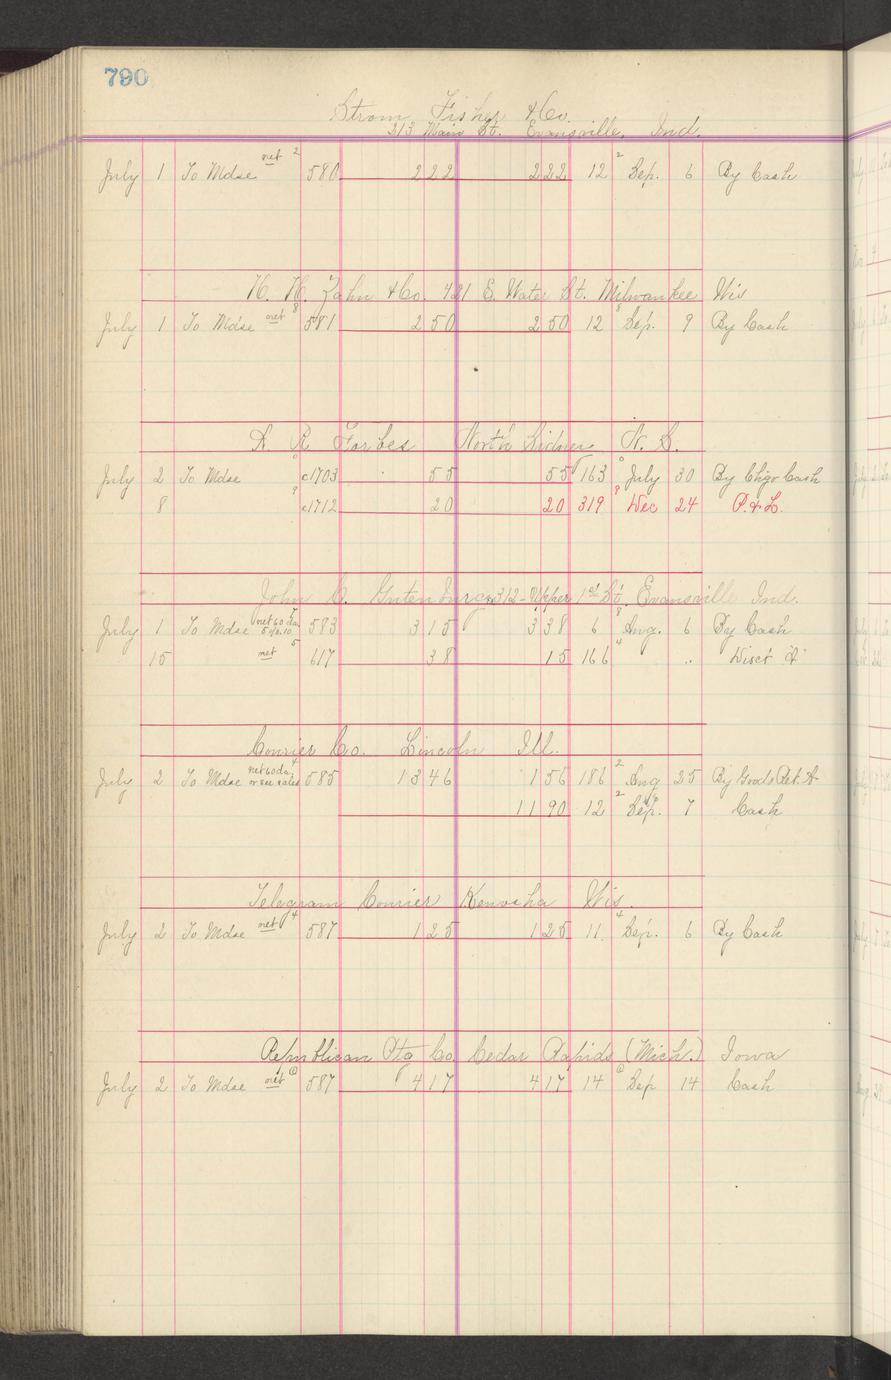 790
Strom, Fisher & Co.
313 Main St. Evansville, Ind.
July 1 To Mdse net 2 580 222 222 12 2 Sep. 6 By Cash
H. H. Zahn & Co. 421 E. Water St. Milwaukee Wis
July 1 To Mdse net 8 581 250 250 12 8 Sep. 9 By Cash
R Forbes North Sidney N. S.
July 2 To Mdse c1703 55 55 163 July 30 By Chgo Cash
8 c1712 20 20 319 Dec 24 P. & L.
John C. Gutenburg, 312 - Upper 1st St. Evansville Ind.
July 1 To Mdse net 60 da. 5% 10 583 315 338 6 8 Aug. 6 By Cash
15 net 5 617 38 15 166 4 " Disct "A"
Courier Co. Lincoln Ill.
July 2 To Mdse net 60 da. or see rates 4 585 1346 156 186 2 Aug 25 By Goods Ret. A
1190 12 2 Sep. 7 Cash
Telegram Courier Kenosha Wis.
July 2 To Mdse net 4 587 125 125 11 4 Sep. 6 By Cash
Republican Ptg Co. Cedar Rapids (Mich.) Iowa
July 2 To Mdse net 587 417 417 14 Sep 14 Cash